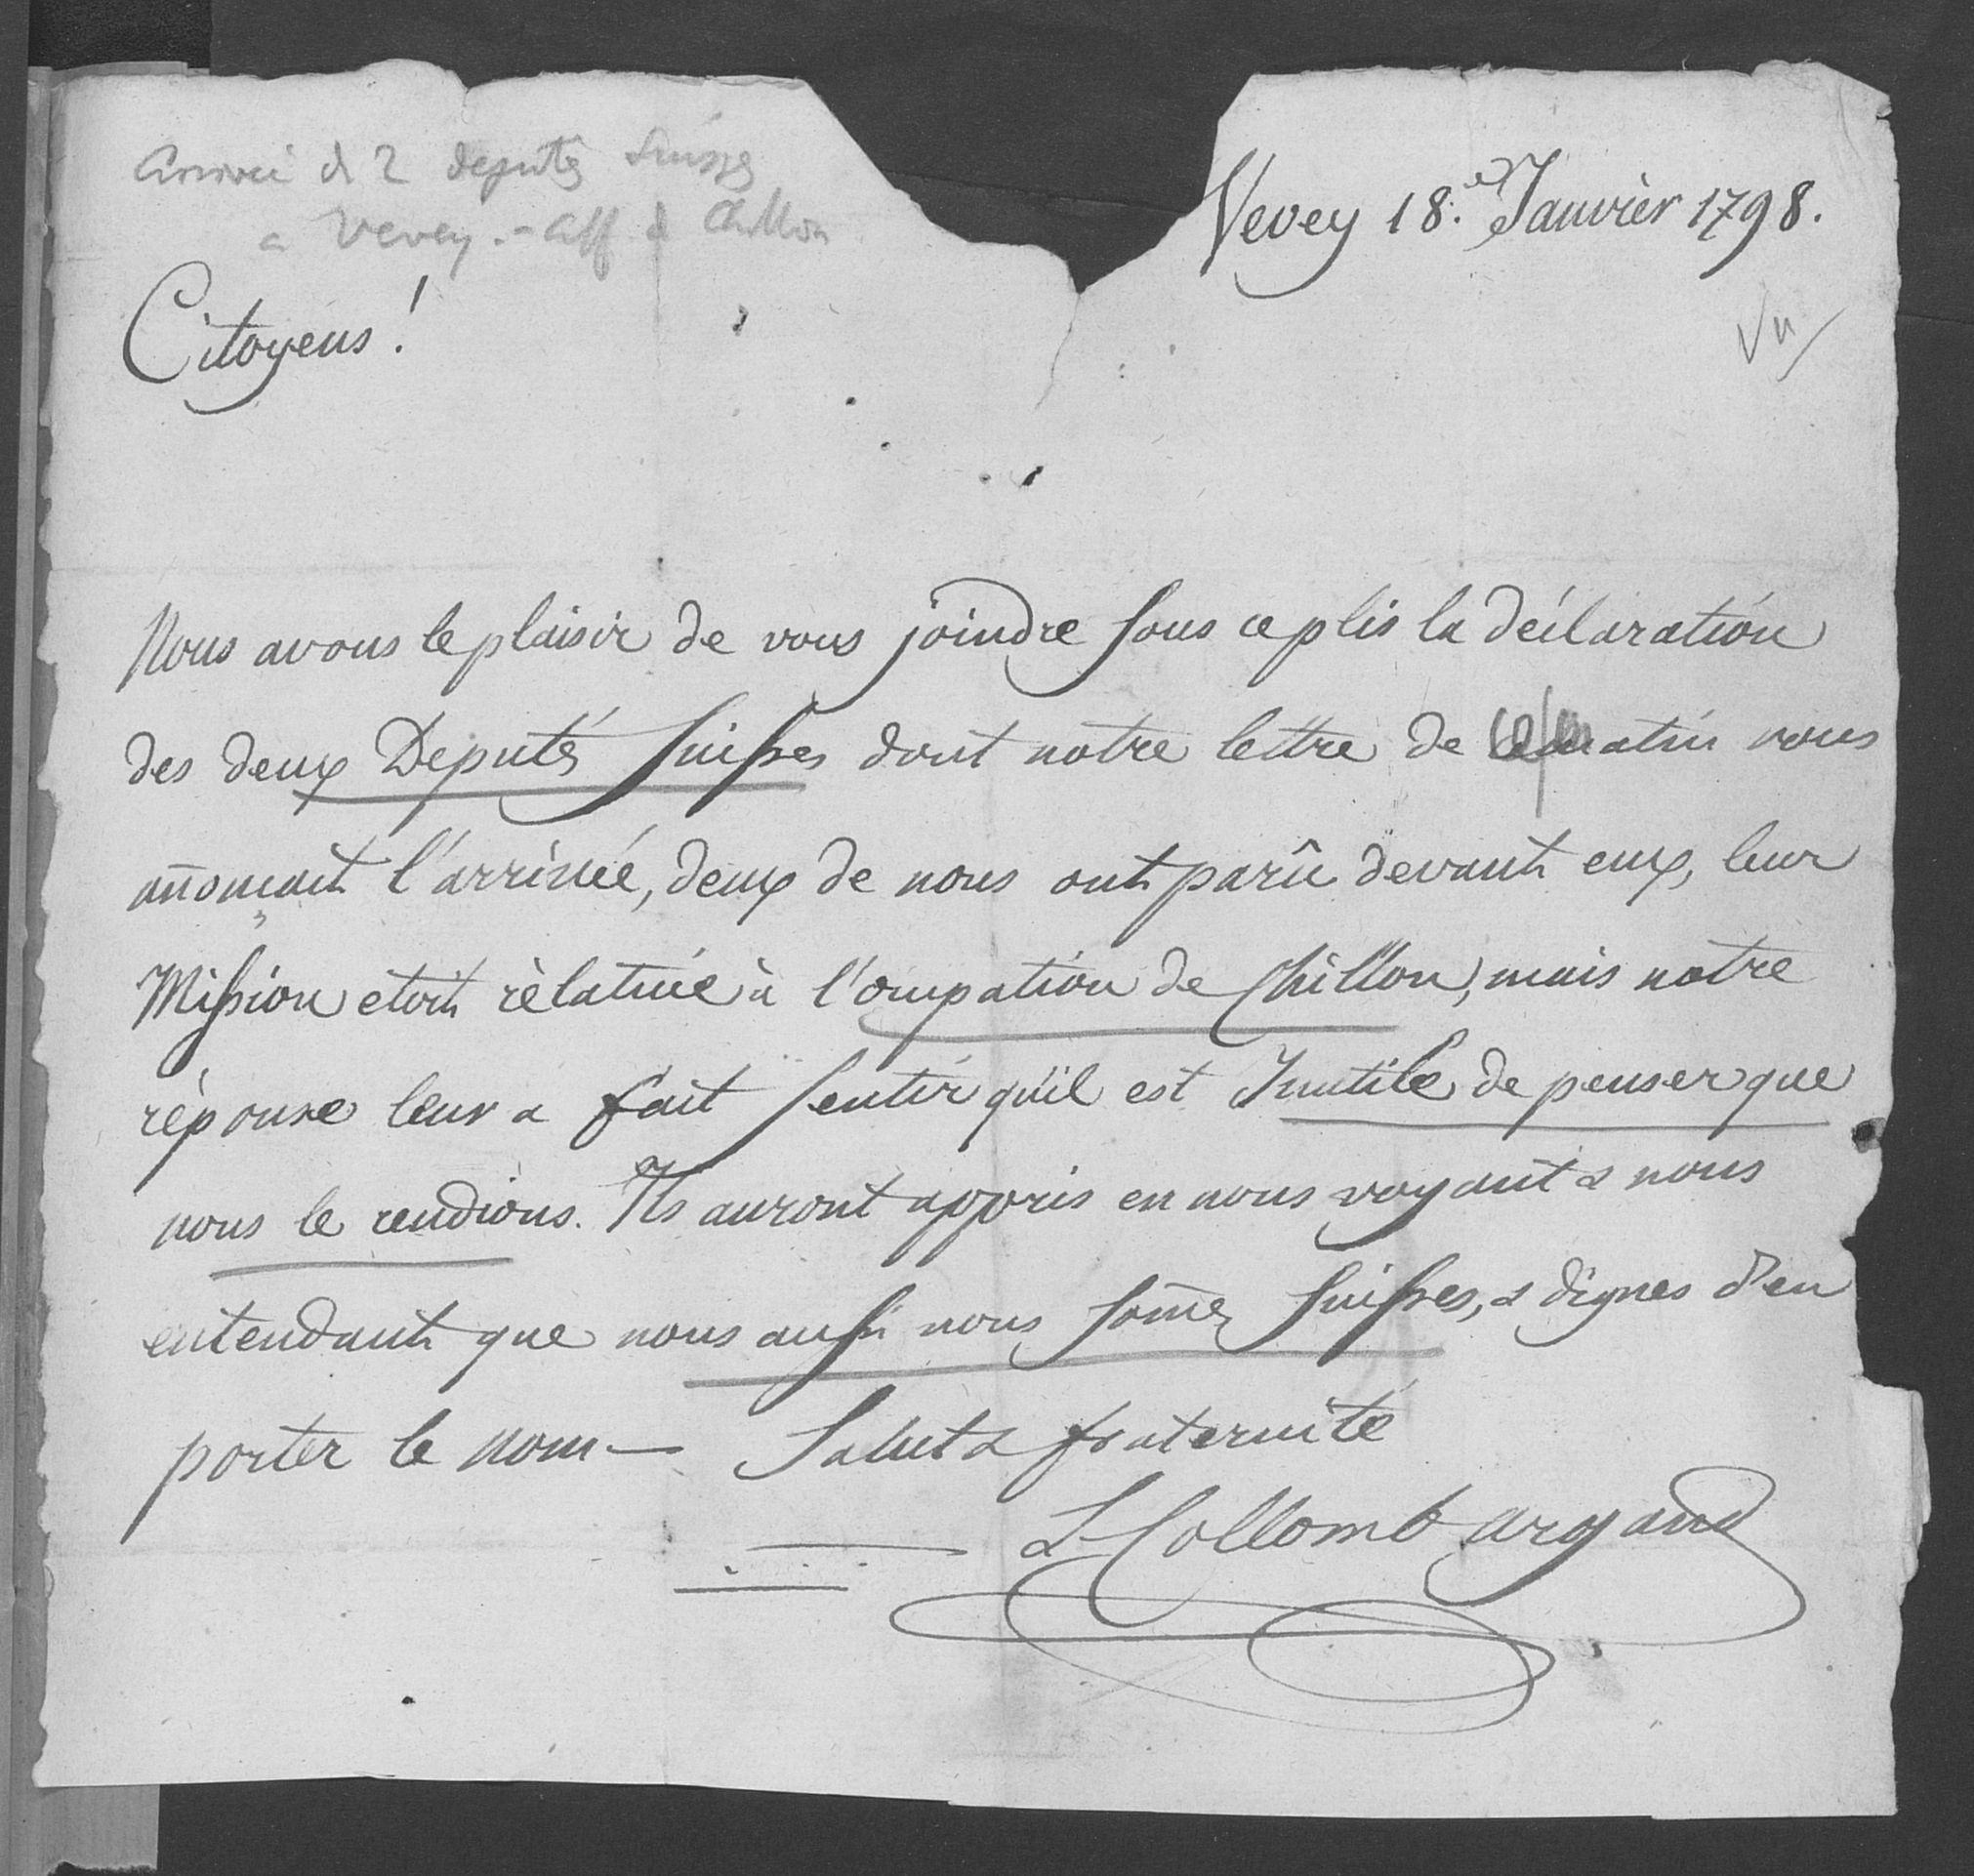 Arrivée de 2 deputés Suisses
a Vevey. - Aff. de Chillon
Vevey 18.e Janvièr 1798.
Vu
Citoyens!
Nous avons le plaisir de vous joindre sous ce plis la déclaration
des deux Deputés Suisses dont notre lettre de ce matin vous
anonçait l'arrivée, deux de nous ont parû devant eux, leur
Mission etoit rèlative à l'ocupation de Chillon, mais notre
rèponse leur a fait sentir qu'il est Inutile de penser que
nous le rendions. Ils auront appris en nous voyant & nous
entendant que nous aussi nous somes Suisses, & dignes d'en
porter le nom — Salut & fraternité
L Collomb argand